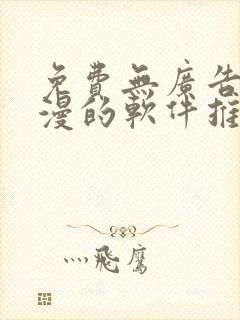 免費無廣告
漫的軟件推
灬飛鷹